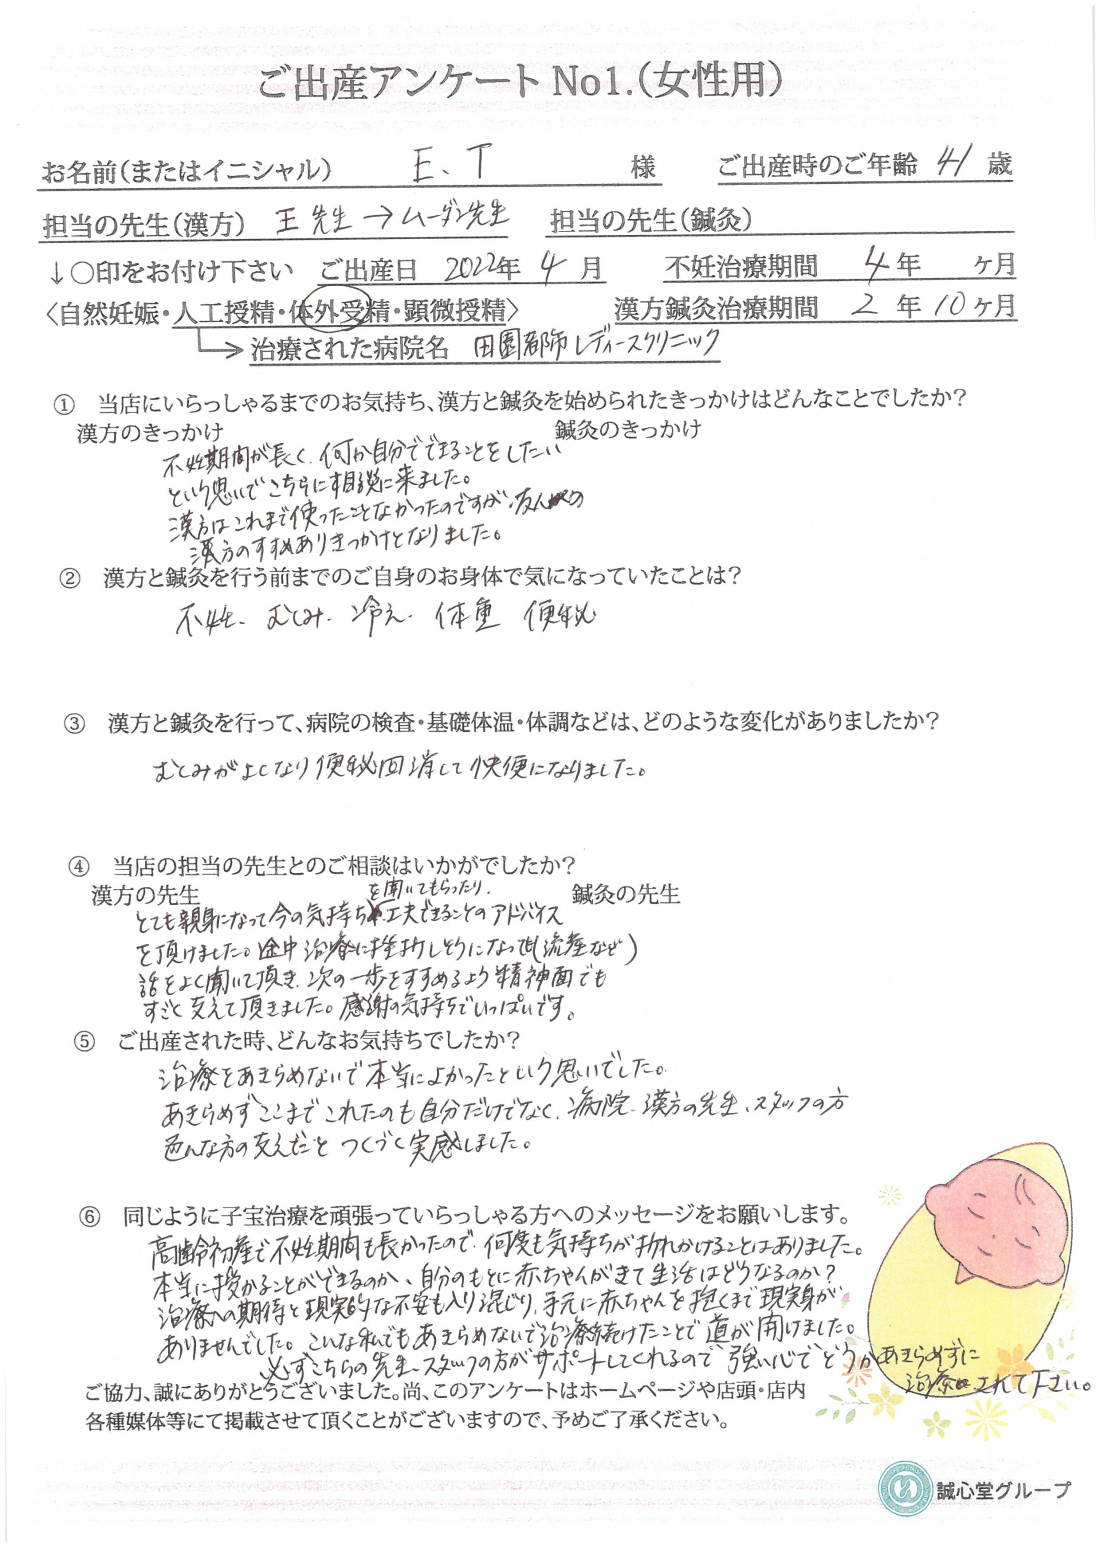 ご出産アンケート No1.(女性用)
お名前(またはイニシャル) E.T 様 ご出産時のご年齢 41 歳
担当の先生(漢方) 王先生→ムーダン先生 担当の先生(鍼灸)
↓○印をお付け下さい ご出産日 2022年 4月 不妊治療期間 4年 ヶ月
〈自然妊娠・人工授精・体外受精・顕微授精〉 漢方鍼灸治療期間 2年10ヶ月
治療された病院名 田園都市レディースクリニック
① 当店にいらっしゃるまでのお気持ち、漢方と鍼灸を始められたきっかけはどんなことでしたか?
漢方のきっかけ 鍼灸のきっかけ
不妊期間が長く、何か自分でできることをしたい
という思いでこちらに相談に来ました。
漢方はこれまで使ったことなかったのですが、友人の
漢方のすすめありきっかけとなりました。
② 漢方と鍼灸を行う前までのご自身のお身体で気になっていたことは?
不妊、むくみ、冷え、体重 便秘
③ 漢方と鍼灸を行って、病院の検査・基礎体温・体調などは、どのような変化がありましたか?
むくみがよくなり便秘回消して快便になりました。
④ 当店の担当の先生とのご相談はいかがでしたか?
漢方の先生 鍼灸の先生
を聞いてもらったり、
とても親身になって今の気持ち工夫できることのアドバイス
を頂けました。途中治療に挫折しそうになっても(流産など)
話をよく聞いて頂き、次の一歩をすすめるよう精神面でも
すごく支えて頂きました。感謝の気持ちでいっぱいです。
⑤ ご出産された時、どんなお気持ちでしたか?
治療をあきらめないで本当によかったという思いでした。
あきらめずここまでこれたのも自分だけでなく、病院、漢方の先生、スタッフの方
色んな方の支えだと つくづく実感しました。
⑥ 同じように子宝治療を頑張っていらっしゃる方へのメッセージをお願いします。
高齢初産で不妊期間も長かったので、何度も気持ちが折れかけることはありました。
本当に授かることができるのか、自分のもとに赤ちゃんがきて生活はどうなるのか?
治療への期待と現実的な不安も入り混じり、手元に赤ちゃんを抱くまで現実身が
ありませんでした。こんな私でもあきらめないで治療続けたことで道が開けました。
必ずこちらの先生、スタッフの方がサポートしてくれるので強い心でどうかあきらめずに
治療されて下さい。
ご協力、誠にありがとうございました。尚、このアンケートはホームページや店頭・店内
各種媒体等にて掲載させて頂くことがございますので、予めご了承ください。
誠心堂グループ